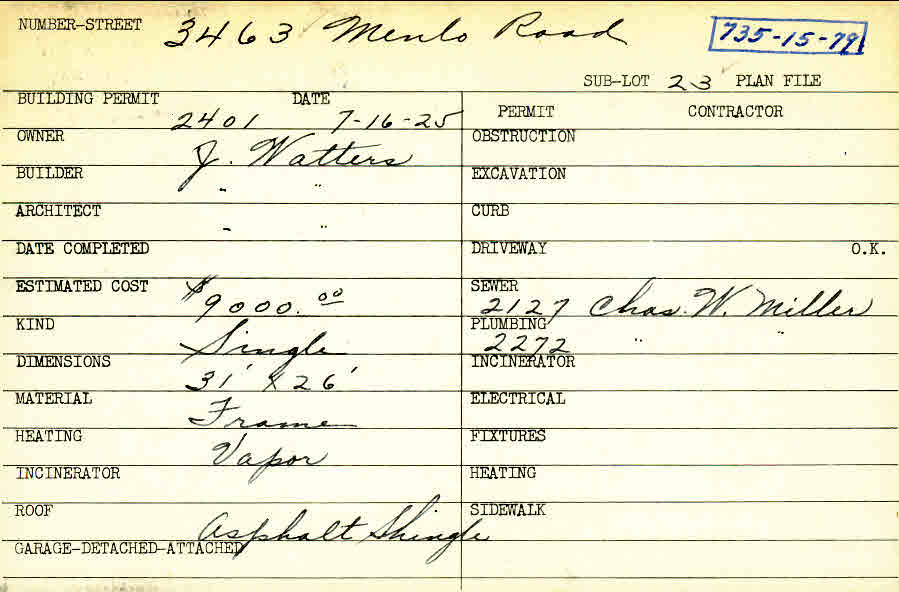 NUMBER-STREET 3463 Menlo Road 735-15-79
SUB-LOT 23 PLAN FILE
BUILDING PERMIT DATE
2401 7-16-25
PERMIT CONTRACTOR
OWNER J. Watters
OBSTRUCTION
BUILDER " "
EXCAVATION
ARCHITECT " "
CURB
DATE COMPLETED
DRIVEWAY O.K.
ESTIMATED COST $9000.00
SEWER
2127 Chas. W. Miller
KIND Single
PLUMBING
2272 " "
DIMENSIONS 31' x 26'
INCINERATOR
MATERIAL Frame
ELECTRICAL
HEATING Vapor
FIXTURES
INCINERATOR
HEATING
ROOF Asphalt Shingle
SIDEWALK
GARAGE-DETACHED-ATTACHED